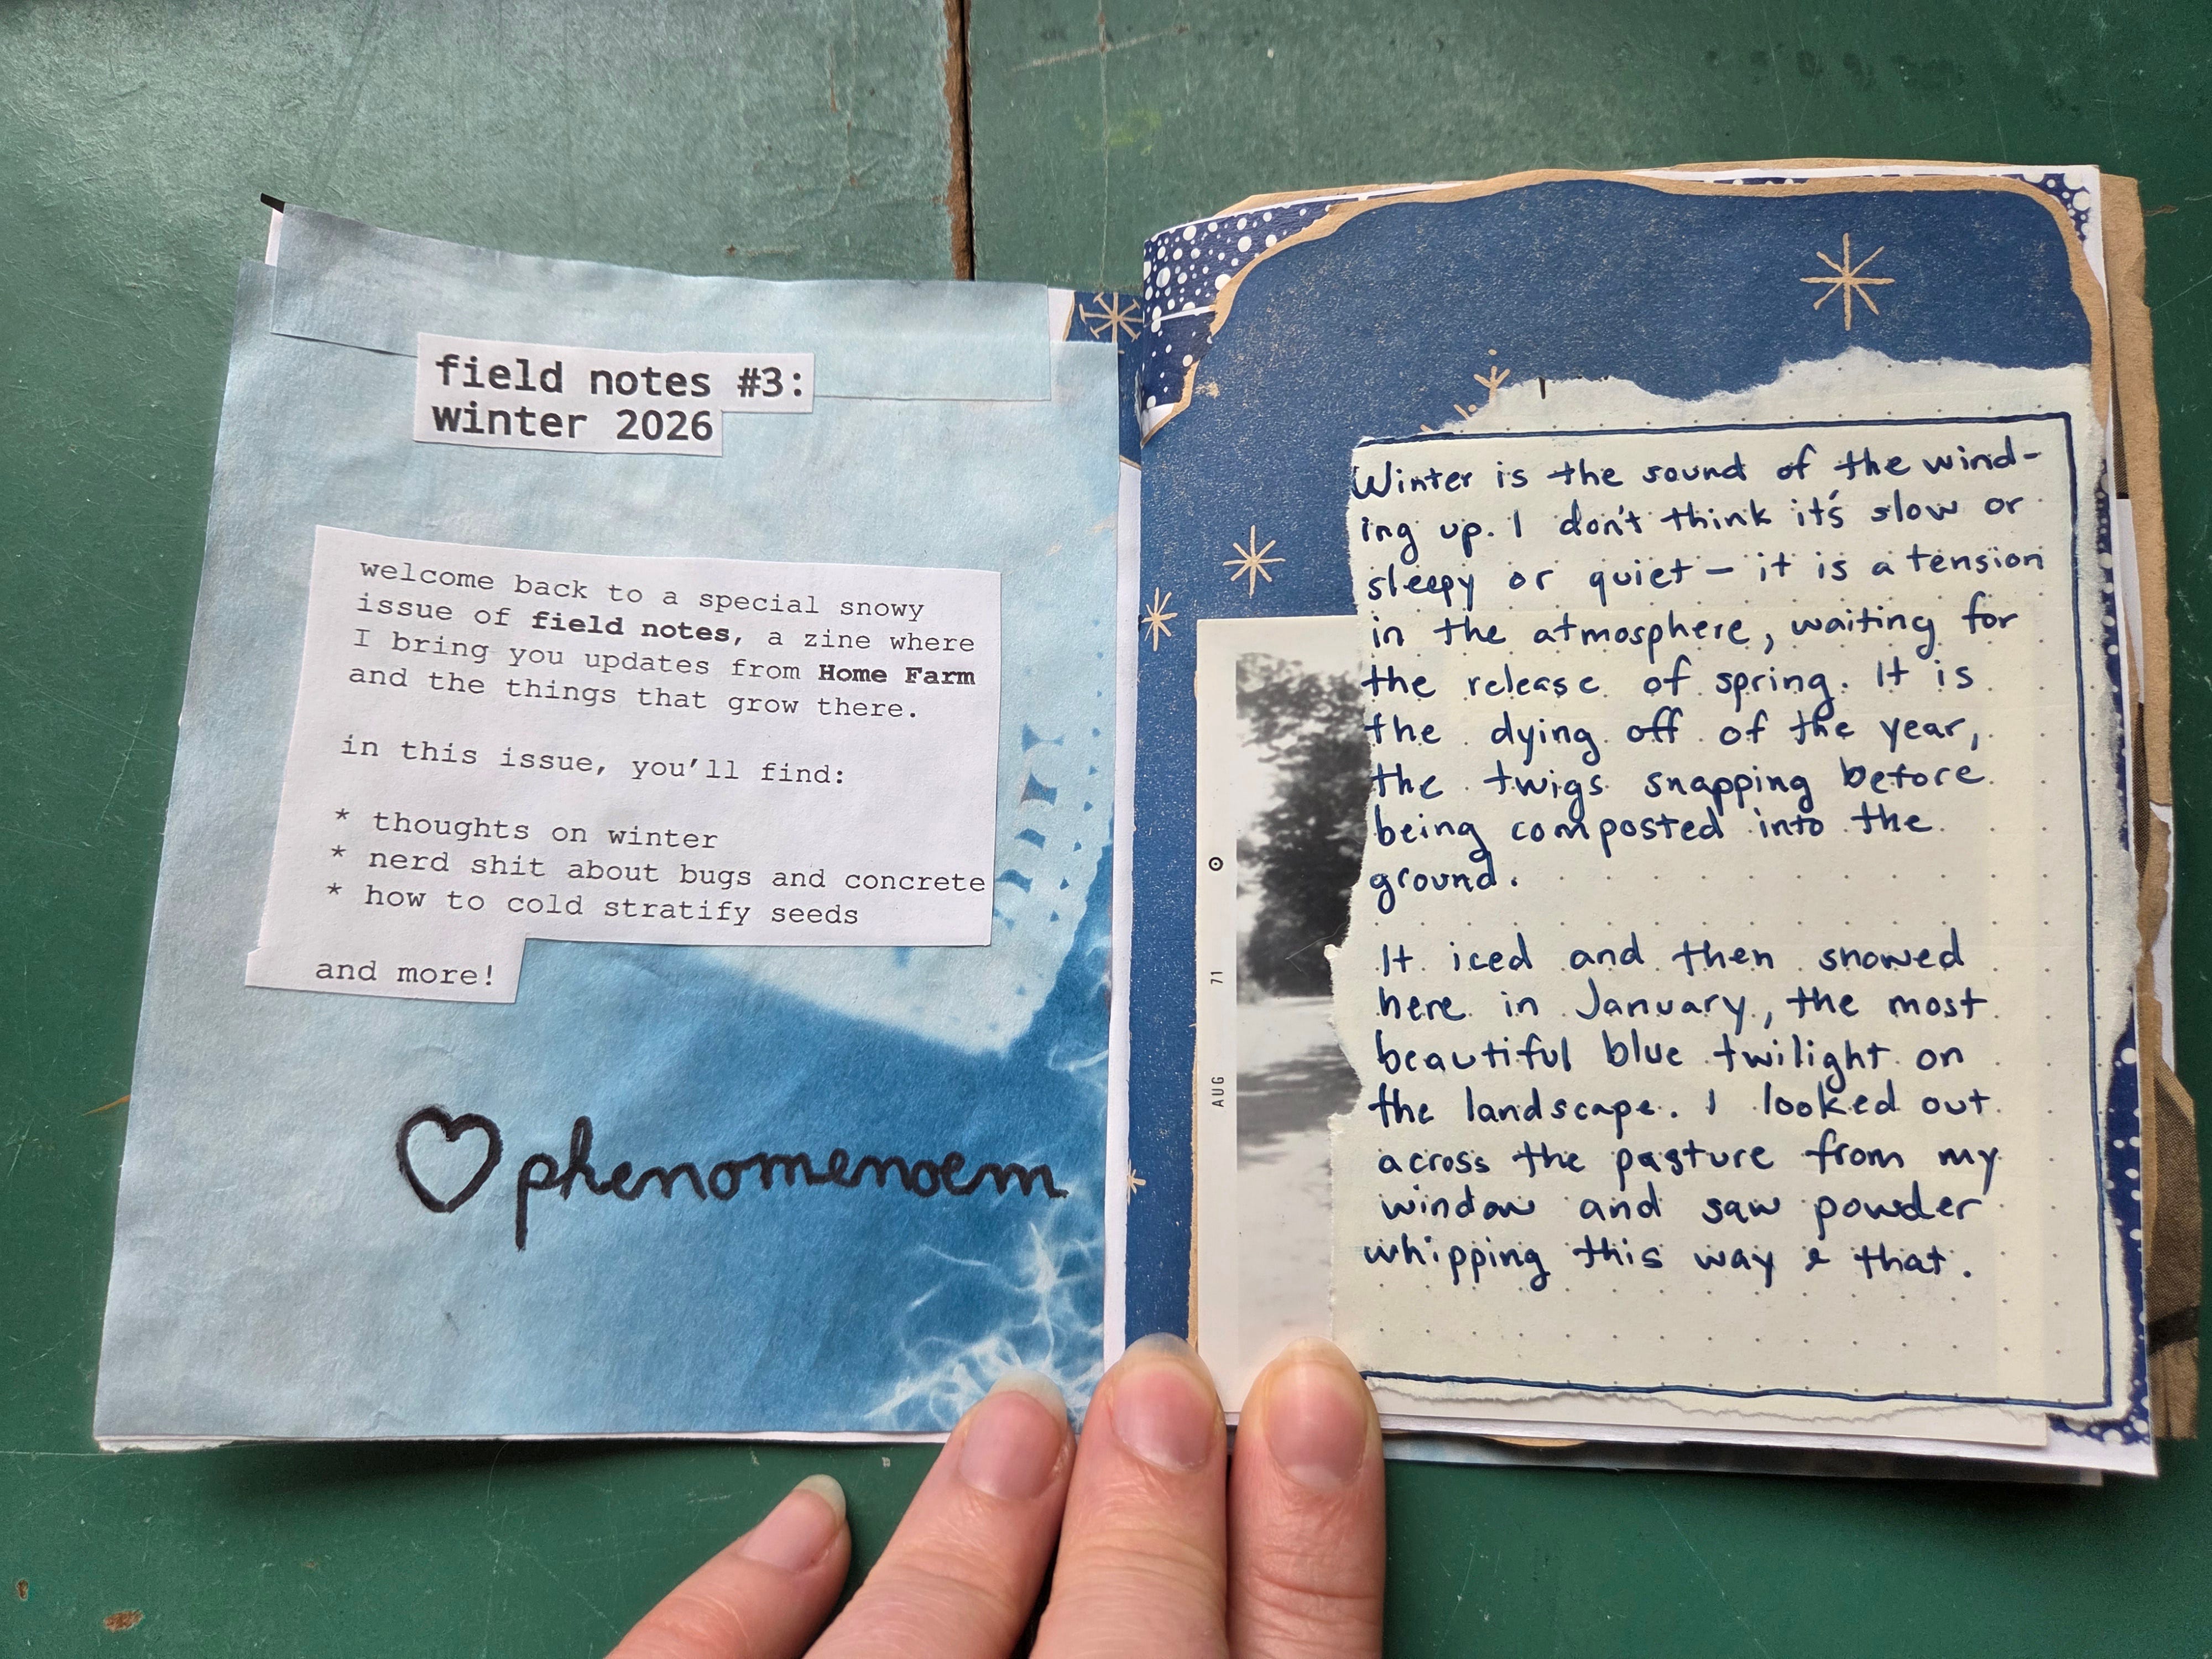 field notes #3:
winter 2026
welcome back to a special snowy
issue of field notes, a zine where
I bring you updates from Home Farm
and the things that grow there.
in this issue, you'll find:
* thoughts on winter
* nerd shit about bugs and concrete
* how to cold stratify seeds
and more!
phenomenoem
AUG 71
Winter is the sound of the wind-
ing up. I don't think it's slow or
sleepy or quiet — it is a tension
in the atmosphere, waiting for
the release of spring. It is
the dying off of the year,
the twigs snapping before
being composted into the
ground.
It iced and then snowed
here in January, the most
beautiful blue twilight on
the landscape. I looked out
across the pasture from my
window and saw powder
whipping this way & that.